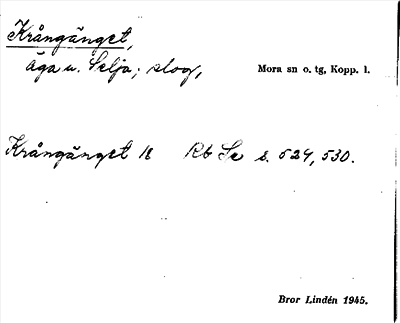 Krångänget,
äga u. Selja; slog,
Mora sn o. tg, Kopp. l.
Krångänget 18 Rb Se s. 524, 530.
Bror Lindén 1945.